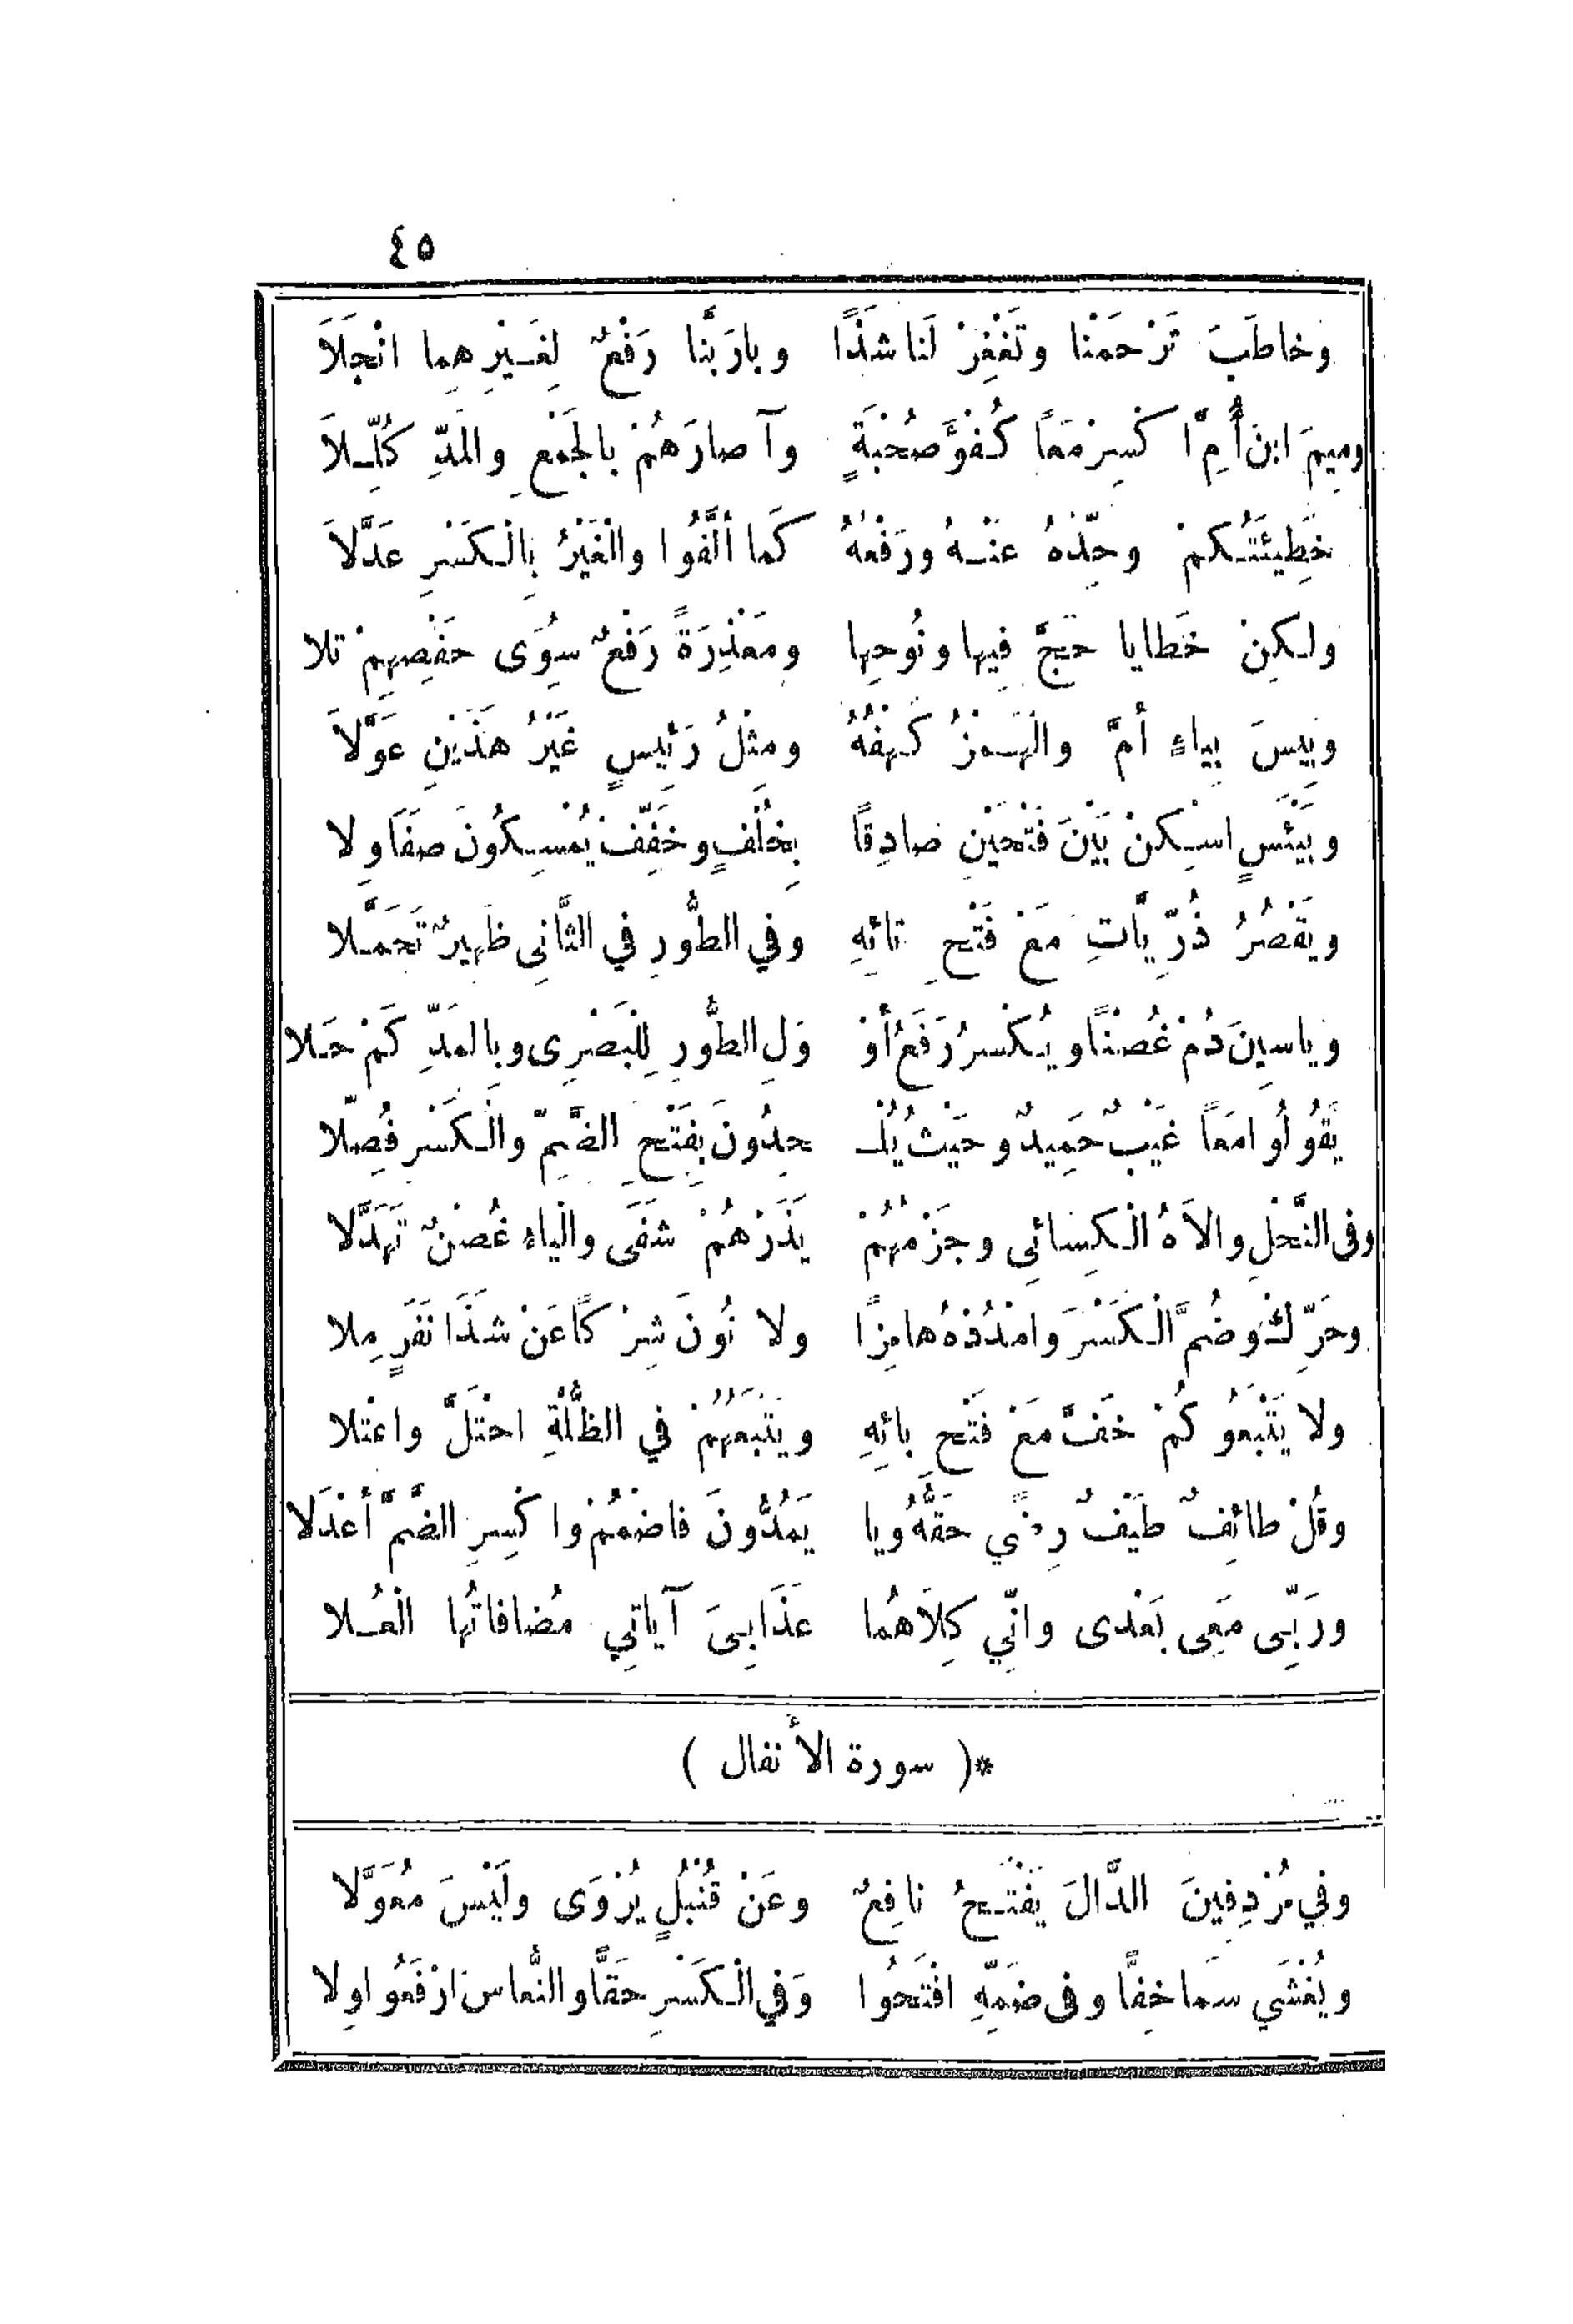 ٤٥
وخاطَبَ تَرْحَمْنا وتَغْفِرْ لَنا شَذًا وبارَبَّنا رَفْعٌ لِغَـيْرِهِما انْجَلَا
ومِيمَ ابنَ أُمِّ اكْسِرْ مَعًا كُـفْؤَ صُحْبَةٍ وآصارَهُمْ بالجَمْعِ والمَدِّ كُلِّـلَا
خَطِيئَتُـكمْ وحِّدْهُ عَنْـهُ ورَفْعُهُ كَما ألَّفُوا والْغَيْرُ بِالْـكَسْرِ عَدَّلَا
ولـكِنْ خَطايا حَجَّ فِيها ونُوحِها ومَعْذِرَةً رَفْعٌ سِوَى حَفْصِهِمْ تلا
وبِيسَ بِياءٍ أمَّ والْهَـمْزُ كَهْفُهُ ومِثْلُ رَئِيسٍ غَيْرُ هَذَيْنِ عَوَّلَا
وبَيْئَسٍ اسْـكِنْ بَيْنَ فَتْحَيْنِ صادِقًا بِخُلْفٍ وخَفِّفْ يُمْسِـكُونَ صَفَا وِلا
ويَقْصُرُ ذُرِّيَّاتِ مَعْ فَتْحِ تائهِ وفي الطُّورِ في الثَّانِى ظَهِيرٌ تَحَمَّـلا
وياسِينَ دُمْ غُصْنًا ويُـكْسَرُ رَفْعُ أوْ وَلِ الطُّورِ لِلْبَصْرِى وبالمَدِّ كَمْ حَـلا
يَقُولُوا مَعًا غَيْبٌ حَمِيدٌ وحَيْثُ يُلْـ حِدُونَ بِفَتْحِ الضَّمِّ والْـكَسْرِ فُصِّلا
وفى النَّحْلِ والاَهُ الْـكِسائِى وجَزْمُهُمْ يَذَرْهُمْ شَفَى والْياءُ غُصْنٌ تَهَدَّلا
وحَرِّكْ وضُمَّ الْـكَسْرَ وامْدُدْهُ هامِزًا ولا نُونَ شِرْكًا عَنْ شَذَا نَفَرٍ مِلا
ولا يَتْبَعُوكُمْ خَفَّ مَعْ فَتْحِ بائِهِ ويَتْبَعُهُمْ في الظُّلَّةِ احْتَلَّ واعْتلا
وقُلْ طائِفٌ طَيْفٌ رِضًي حَقُّهُ ويا يَمُدُّونَ فاضْمُمْ واكْسِرِ الضَّمَّ أعْدَلا
ورَبِّى مَعِى بَعْدى وانِّي كِلَاهُما عَذَابِىَ آياتِي مُضافاتُها الْعُـلا
*( سورة الأنفال )
وفي مُرْدِفِينَ الدَّالَ يَفْتَـحُ نافِعٌ وعَنْ قُنْبُلٍ يُرْوَى ولَيْسَ مُعَوَّلا
ويُغْشَي سَما خِفًّا وفى ضَمِّهِ افْتَحُوا وَفي الْـكَسْرِ حَقًّا والنُّعاسَ ارْفَعُوا وِلا